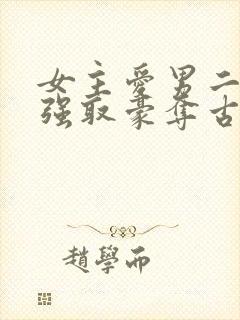 女主愛男二
强取豪奪古
趙學而